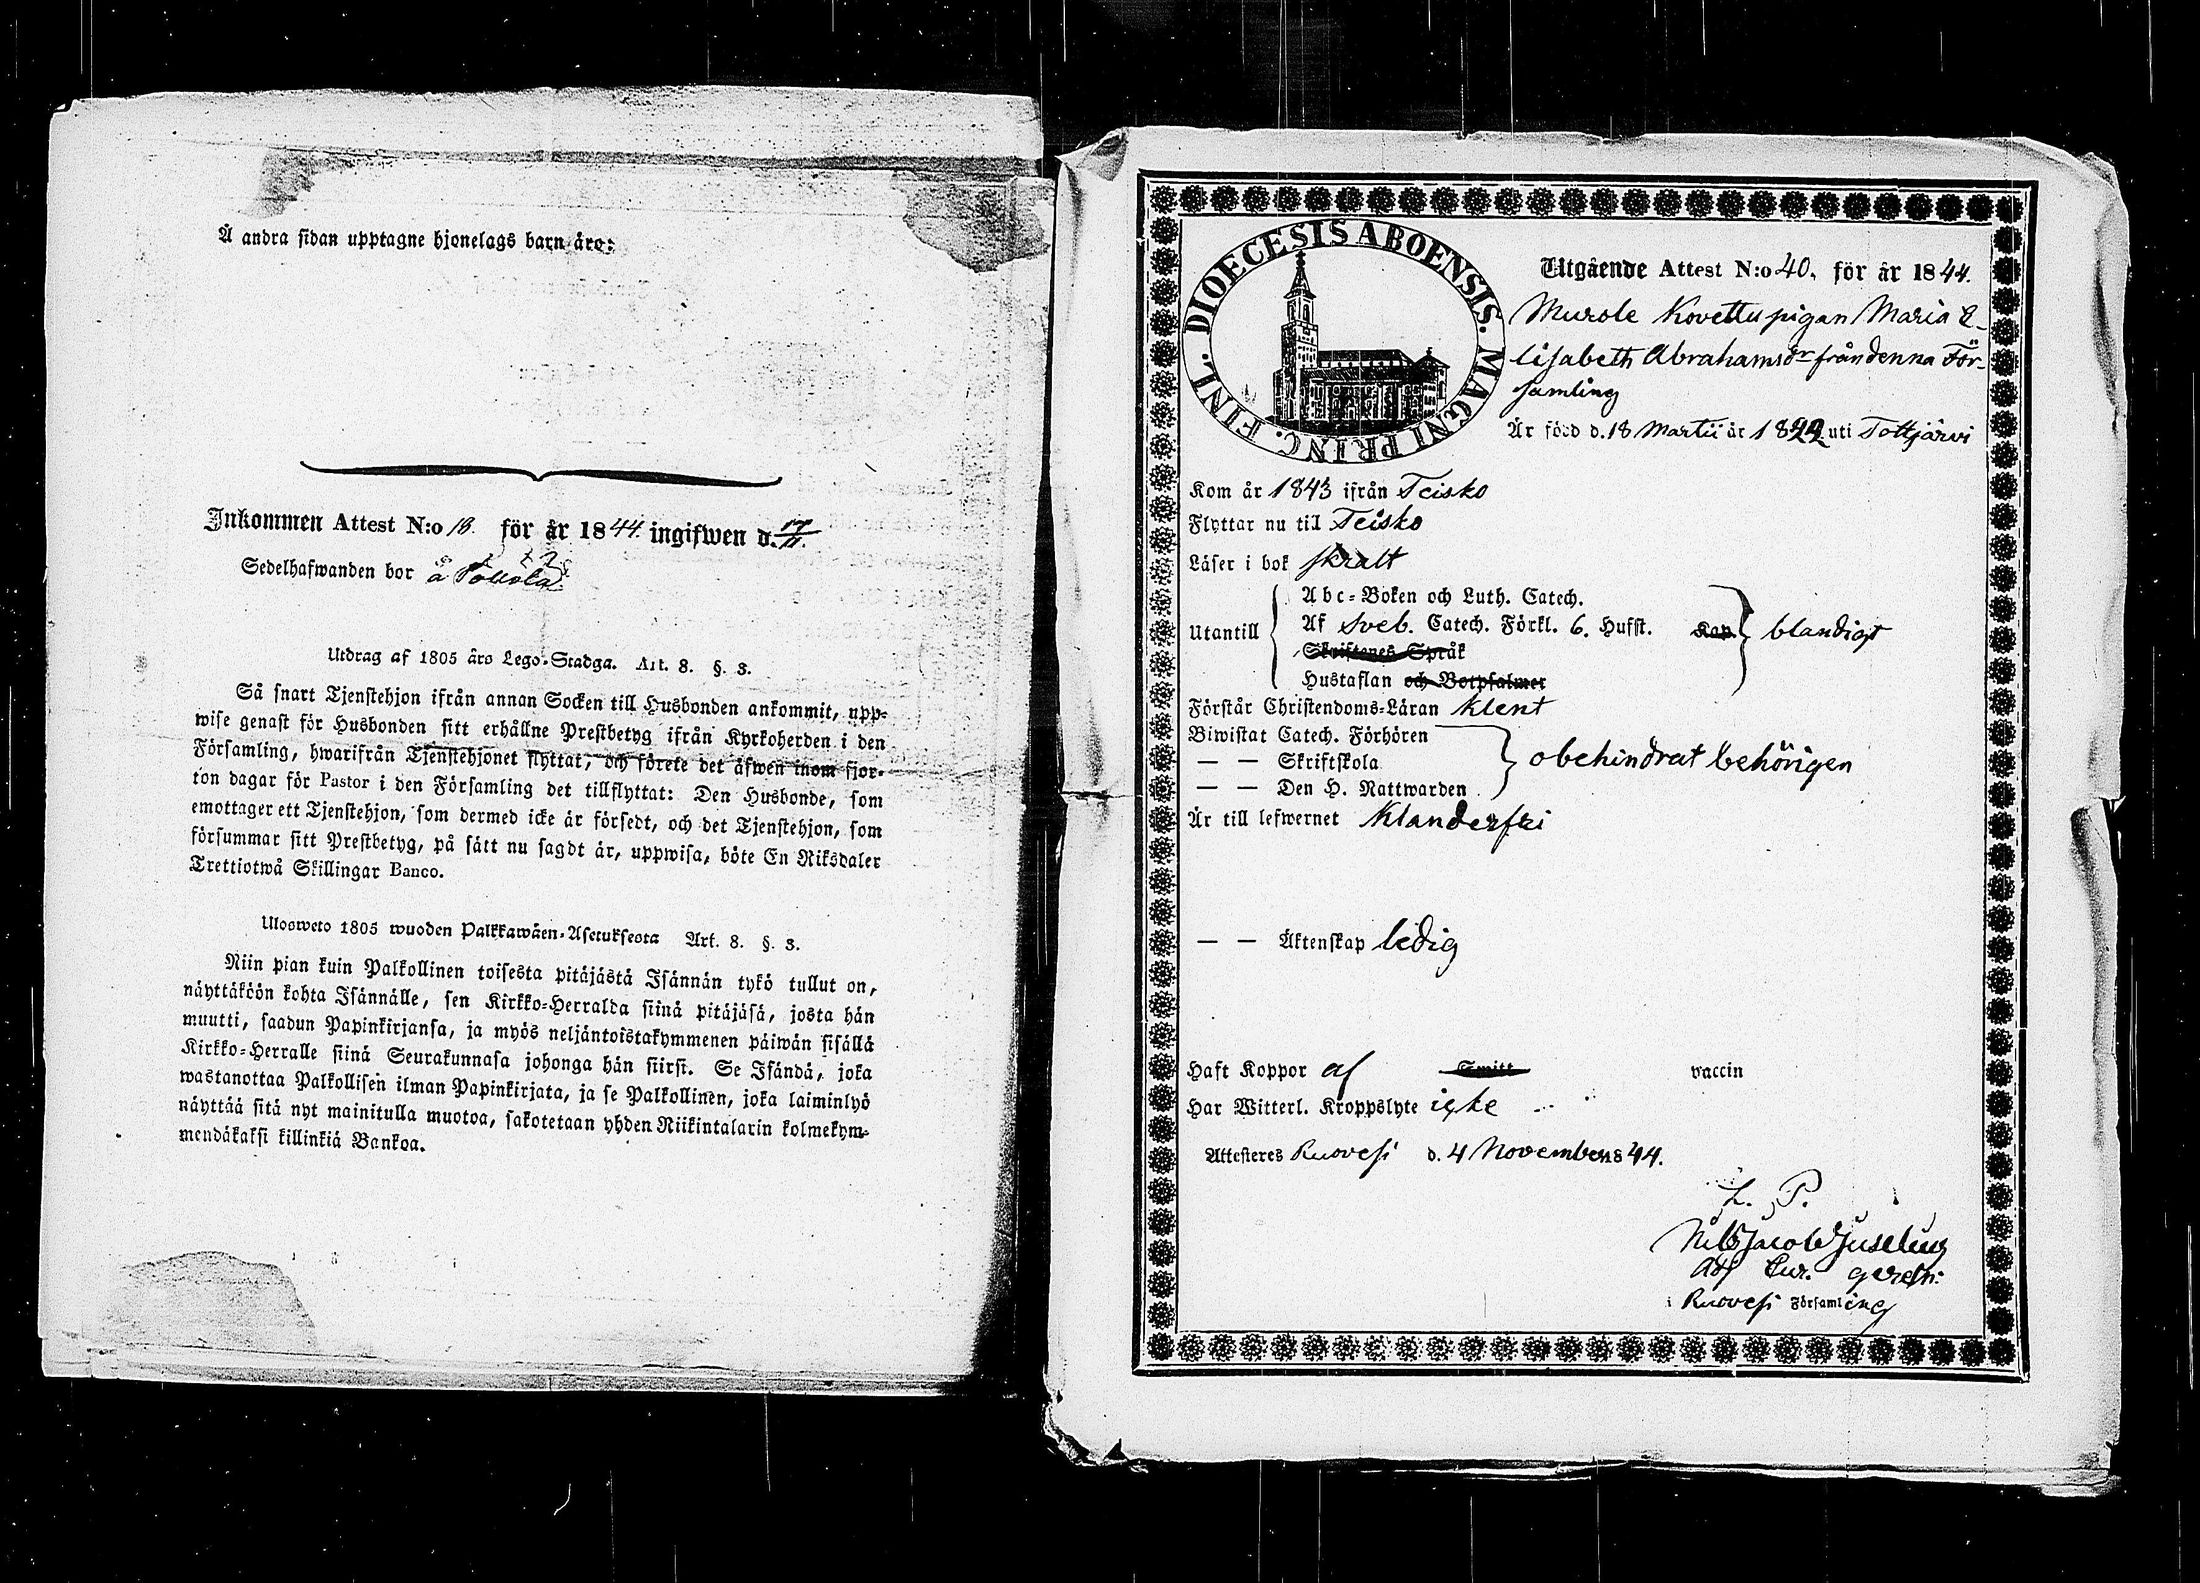 Å andra sidan upptagne hjonelags barn äro:
Inkommen Attest N:o 18. för år 1844. ingifwen d. 17/11.
Sedelhafwanden bor å
Utdrag af 1805 års Lego-Stadga. Art. 8. §. 3.
Så snart Tjenstehjon ifrån annan Socken till Husbonden ankommit, upp-
wise genast för Husbonden sitt erhållne Prestbetyg ifrån Kyrkoherden i den
Församling, hwarifrån Tjenstehjonet flyttat, och förete det äfwen inom fjor-
ton dagar för Pastor i den Församling det tillflyttat: Den Husbonde, som
emottager ett Tjenstehjon, som dermed icke är försedt, och det Tjenstehjon, som
försummar sitt Prestbetyg, på sätt nu sagdt är, uppwisa, böte En Riksdaler
Trettiotwå Skillingar Banco.
Ulosweto 1805 wuoden Palkkawäen-Asetuksesta Art. 8. §. 3.
Niin pian kuin Palkollinen toisesta pitäjästä Isännän tykö tullut on,
näyttäköön kohta Isännälle, sen Kirkko-Herralda siinä pitäjäsä, josta hän
muutti, saadun Papinkirjansa, ja myös neljäntoistakymmenen päiwän sisällä
Kirkko-Herralle siinä Seurakunnasa johonga hän siirsi. Se Isändä, joka
wastanottaa Palkollisen ilman Papinkirjata, ja se Palkollinen, joka laiminlyö
näyttää sitä nyt mainitulla muotoa, sakotetaan yhden Riikintalarin kolmekym-
mendäkaksi killinkiä Bankoa.
DIOECESIS ABOENSIS. MAGNI PRINC. FINL.
Utgående Attest N:o 40, för år 1844.
Murole Kovettu pigan Maria E-
lisabeth Abrahamsdr från denna För-
samling
Är född d. 18 Martii år 1822 uti Tottjärvi
Kom år 1843 ifrån Teisko
Flyttar nu till Teisko
Läser i bok skralt
Utantill
Abc-Boken och Luth. Catech.
Af Sveb. Catech. Förkl. 6. Hufst. Kap. blandigt
Skriftenes Språk
Hustaflan och Botpsalmer
Förstår Christendoms-Läran klent
Biwistat Catech. Förhören
— — Skriftskola obehindrat behörigen
— — Den H. Nattwarden
Är till lefwernet Klanderfri
— — Äktenskap ledig
Haft Koppor af Smitt vaccin
Har Witterl. Kroppslyte icke
Attesteres Ruovesi d. 4 November 1844.
L. P.
Nils Jacob Juselius
Adj Cur. gerens
i Ruovesi Församling